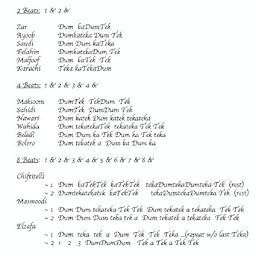 2 Beats: 1 & 2 &
Zar Dum kaDumTek
Ayoob Dumkateka Dum Tek
Saudi Dum Dum kaTeka
Felahin DumkatekaDum Tek
Malfoof Dum kaTek Tek
Karachi Teka kaTekaDum
4 Beats: 1 & 2 & 3 & 4 &
Maksoom DumTek TekDum Tek
Sahidi DumTek DumDum Tek
Nawari Dum katek Dum katek tekateka
Wahida Dum tekatekaTek tekateka Tek tekateka
Beladi Dum Dum ka Tek Dum ka Tek teka
Bolero Dum tekatek a Dum ka Dum ka
8 Beats: 1 & 2 & 3 & 4 & 5 & 6 & 7 & 8 &
Chifretelli
~ 1 Dum kaTekTek kaTekTek tekaDumtekaDumteka Tek (rest)
~ 2 Dumtekatekatek kaTekTek tekaDumtekaDumteka Tek (rest)
Masmoodi
~ 1 Dum Dum tekateka Tek Dum tekatek a tekateka Tek Tek
~ 2 Dum Dum Dum teka tek a Dum tekatek a tekateka Tek Tek
Elzafa
~ 1 Dum teka tek a Dum Tek Tek Teka ...(repeat w/o last Teka)
~ 2 1 2 3 DumDumDum Tek a Tek a Tek Tek